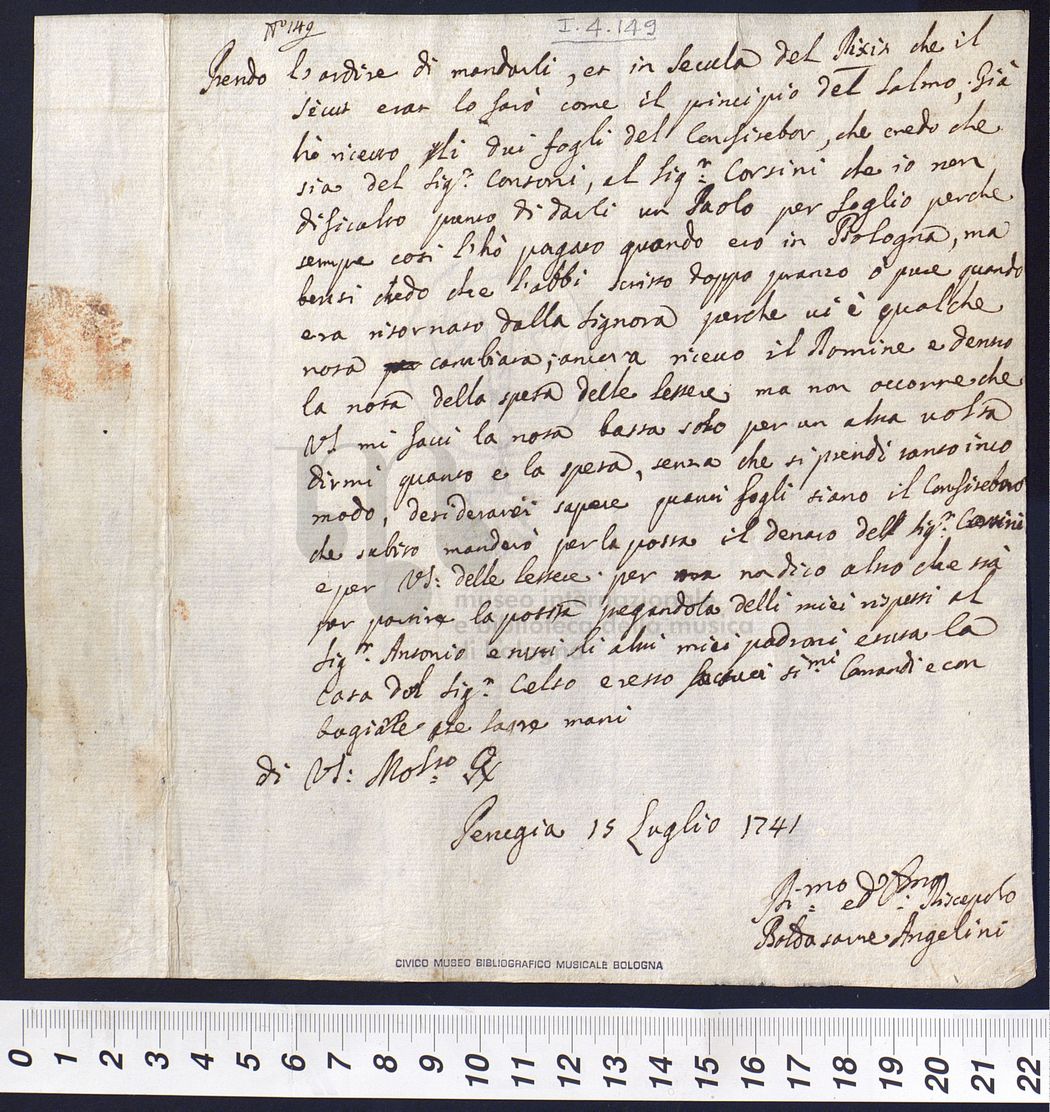 N.º 149
I.4.149
Prendo l'ardire di mandarli, et in secula del Dixit che il
sicut erat lo farò come il principio del Salmo; Già
hò riceuto gli dui fogli del Confitebor, che credo che
sia del Sig.r Consoni, al Sig.r Corsini che io non
disicalto punto di darli un Paolo per foglio perche
sempre così l'hò pagato quando ero in Bologna, ma
bensi chedo che l'abbi scritto doppo pranzo ò pure quando
era ritornato dalla Signora perche vi è qualche
nota cambiata; ancora riceuo il Domine e dentro
la nota della spesa delle lettere, ma non occorre che
VS mi facci la nota basta solo per un altra uolta
dirmi quanto e la spesa, senza che si prendi tanto inco
modo, desiderarei sapere quanti fogli siano il Confitebor
che subito manderò per la posta il denaro del Sig.r Corsini
e per VS: delle lettere. per no dico altro che stà
per partire la posta pregandola delli miei rispetti al
Sig.r Antonio e tutti li altri miei padroni e tutta la
Casa del Sig.r Celso e resto si.mi Comandi e con
bagiarle le sacre mani
di VS: Molto
Perugia 15 Luglio 1741
ed Discepolo
Baldasarre Angelini
museo internazionale
e biblioteca della musica
di bologna
CIVICO MUSEO BIBLIOGRAFICO MUSICALE BOLOGNA
0 1 2 3 4 5 6 7 8 9 10 11 12 13 14 15 16 17 18 19 20 21 22